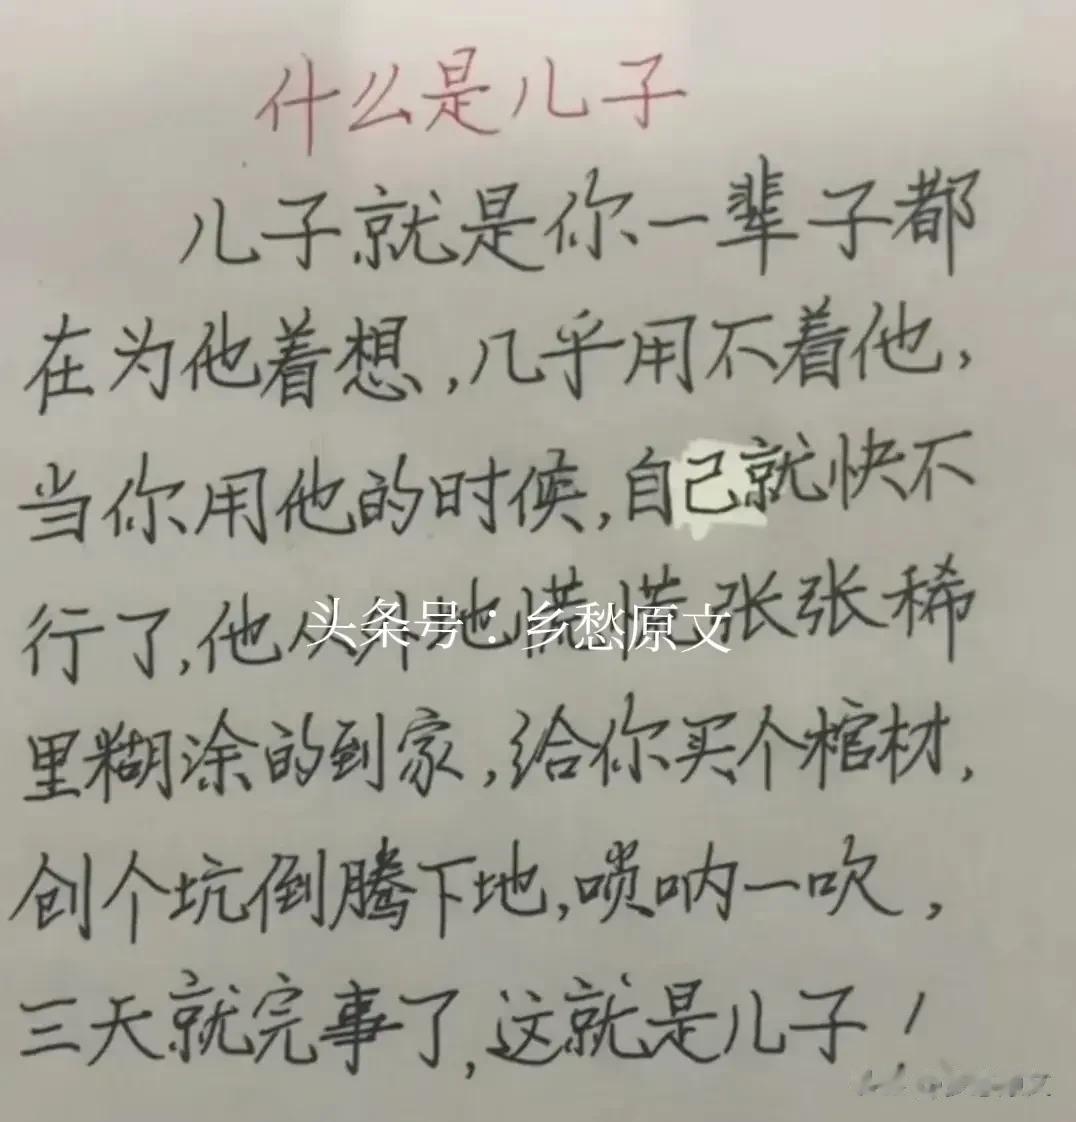 什么是儿子
儿子就是你一辈子都
在为他着想,几乎用不着他,
当你用他的时候,自己就快不
行了,他从外地慌慌张张稀
头条号:乡愁原文
里糊涂的到家,给你买个棺材,
创个坑倒腾下地,唢呐一吹,
三天就完事了,这就是儿子!